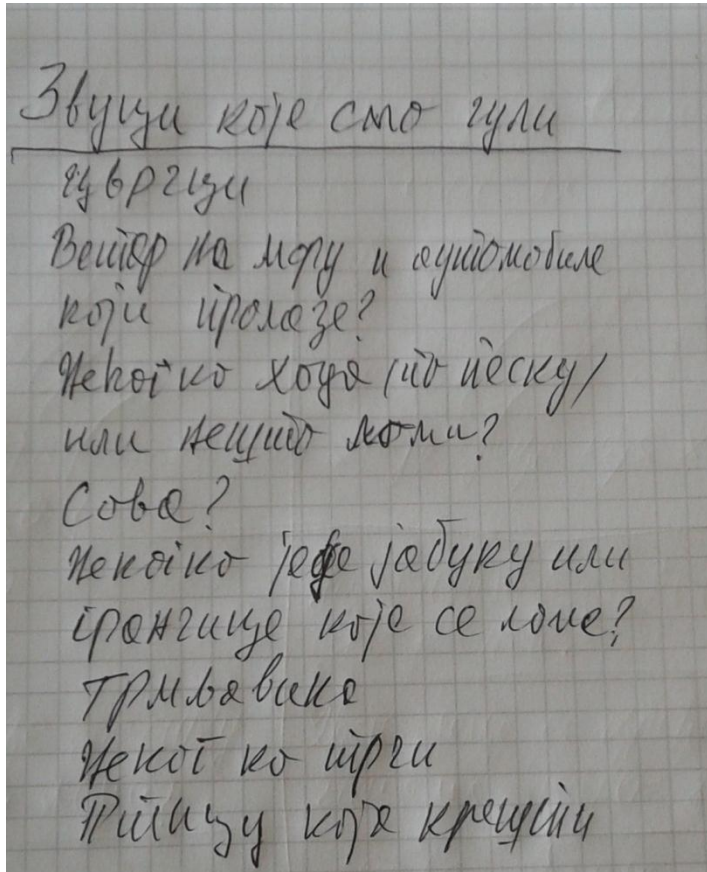 Звуци које смо чули
Цврчци
Ветар на мору и аутомобиле
који пролазе?
Неког ко хода /по песку/
или нешто ломи?
Сова?
Неког ко једе јабуку или
гранчице које се ломе?
Грмљавина
Неког ко трчи
Птицу која крешти